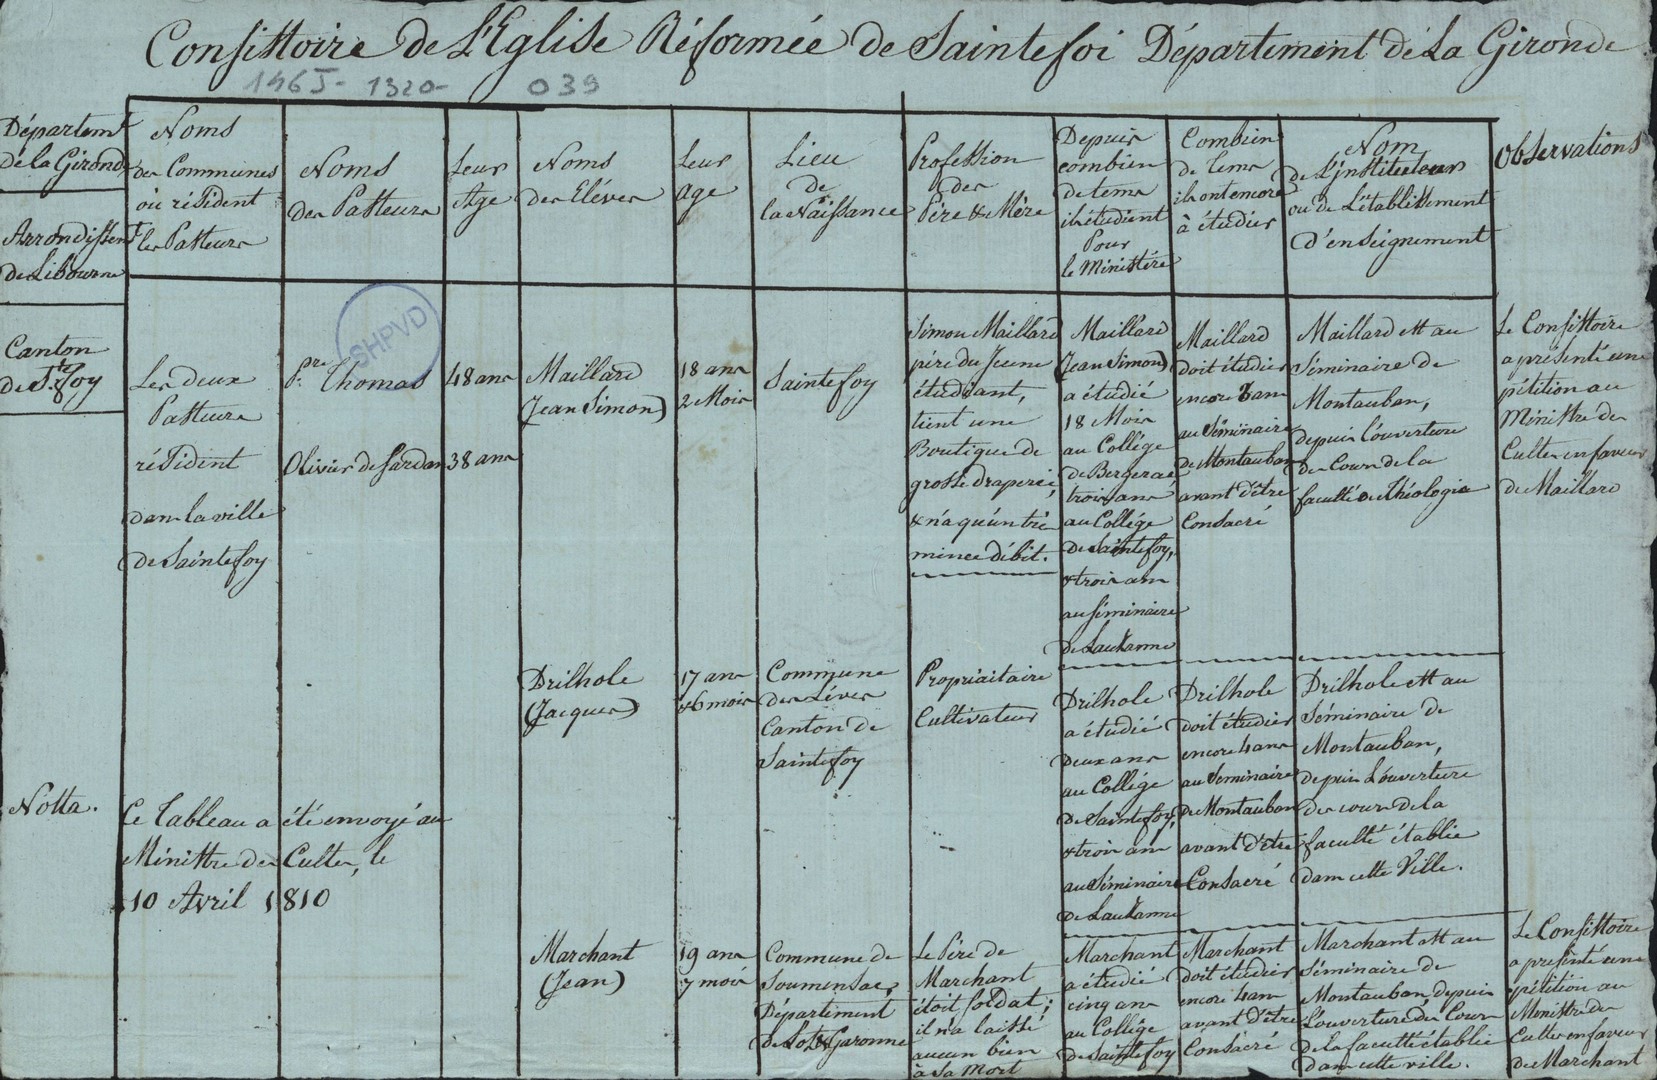 Consistoire de L'Eglise Réformée de Saintefoi Département de La Gironde
1465- 1320- 039
Départemt
de la Gironde
Arrondissent
de Libourne
Canton
de Ste foy
Notta.
Noms
des Communes
où résident
les Pasteurs
Les deux
Pasteurs
résident
dans la ville
de Saintefoy
Ce Tableau a été envoyé au
Ministre des Cultes, le
10 Avril 1810
Noms
des Pasteurs
SHPVD
Pre. Thomas
Olivier de Sardan
Leur
Age
48 ans
38 ans
Noms
des Eléves
Maillard
(Jean Simon)
Drilhole
(Jacques)
Marchant
(Jean)
Leur
age
18 ans
2 Mois
17 ans
& 6 mois
19 ans
7 mois
Lieu
de
la Naissance
Saintefoy
Commune
des Léves
Canton de
Saintefoy
Commune de
Soumensac,
Département
de Lot & Garonne
Profession
des
Pére & Mére
Simon Maillard
pére du Jeune
étudiant,
tient une
Boutique de
grosse draperie,
& n'a qu'un très
mince débit.
Propriaitaire
Cultivateur
Le Pére de
Marchant
étoit Soldat;
il n'a laissé
aucun bien
à sa mort
Depuis
combien
de tems
ils étudient
Pour
le Ministére
Maillard
(Jean Simon)
a étudié
18 Mois
au Collége
de Bergerac,
trois ans
au Collége
de Saintefoy,
& trois ans
au Séminaire
de Lausanne
Drilhole
a étudié
deux ans
au Collége
de Saintefoy,
& trois ans
au Séminaire
de Lausanne
Marchant
a étudié
cinq ans
au Collége
de Saintefoy
Combien
de tems
ils ont encore
à étudier
Maillard
doit étudier
encore ans
au Séminaire
de Montauban
avant d'être
Consacré
Drilhole
doit étudier
encore 4 ans
au Seminaire
de Montauban
avant d'être
Consacré
Marchant
doit étudier
encore 4 ans
avant d'être
Consacré
Nom
de L'instituteur
ou de L'établissement
d'enseignement
Maillard est au
Séminaire de
Montauban,
depuis l'ouverture
des Cours de la
faculté de Théologie
Drilhole est au
Séminaire de
Montauban,
depuis L'ouverture
des cours de la
faculté établie
dans cette Ville.
Marchant est au
Séminaire de
Montauban, depuis
L'ouverture des Cours
de la faculté établie
dans cette ville.
Observations
Le Consistoire
a présenté une
pétition au
Ministre des
Cultes en faveur
de Maillard
Le Consistoire
a présenté une
pétition au
Ministre des
Cultes en faveur
de Marchant